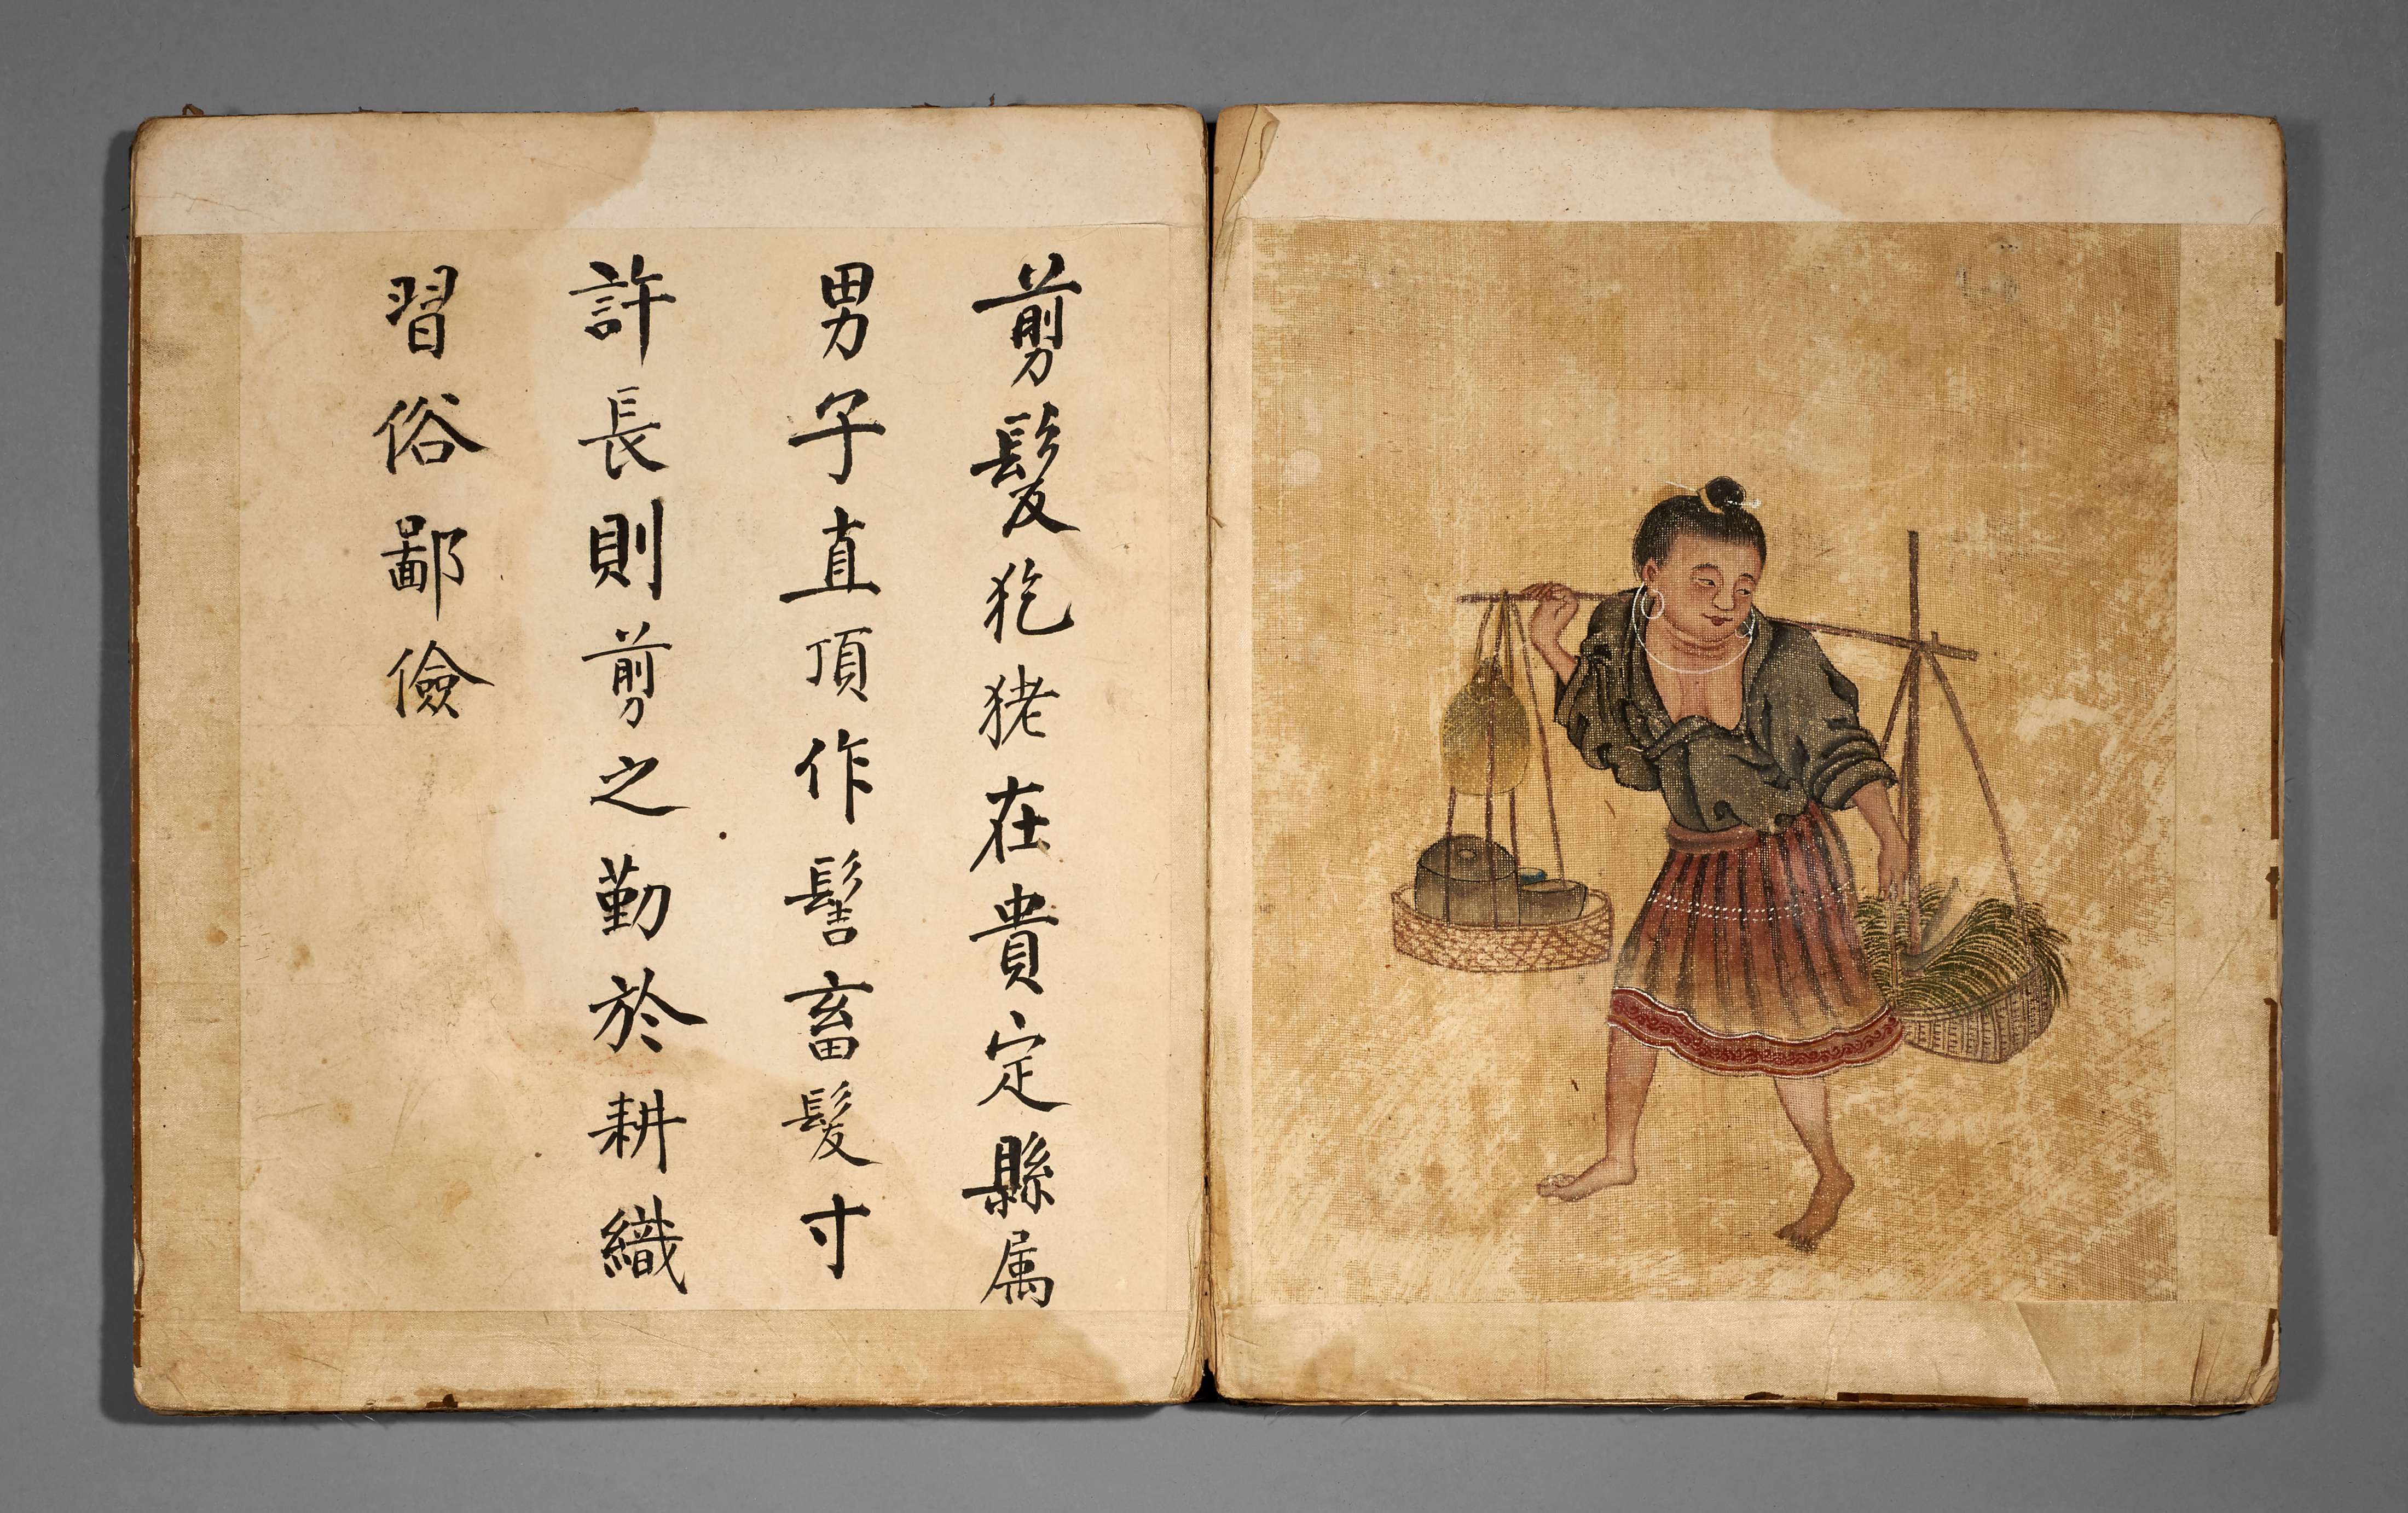 剪髮犵狫在貴定縣属
男子直頂作髻畜髮寸
許長則剪之勤於耕織
習俗鄙儉